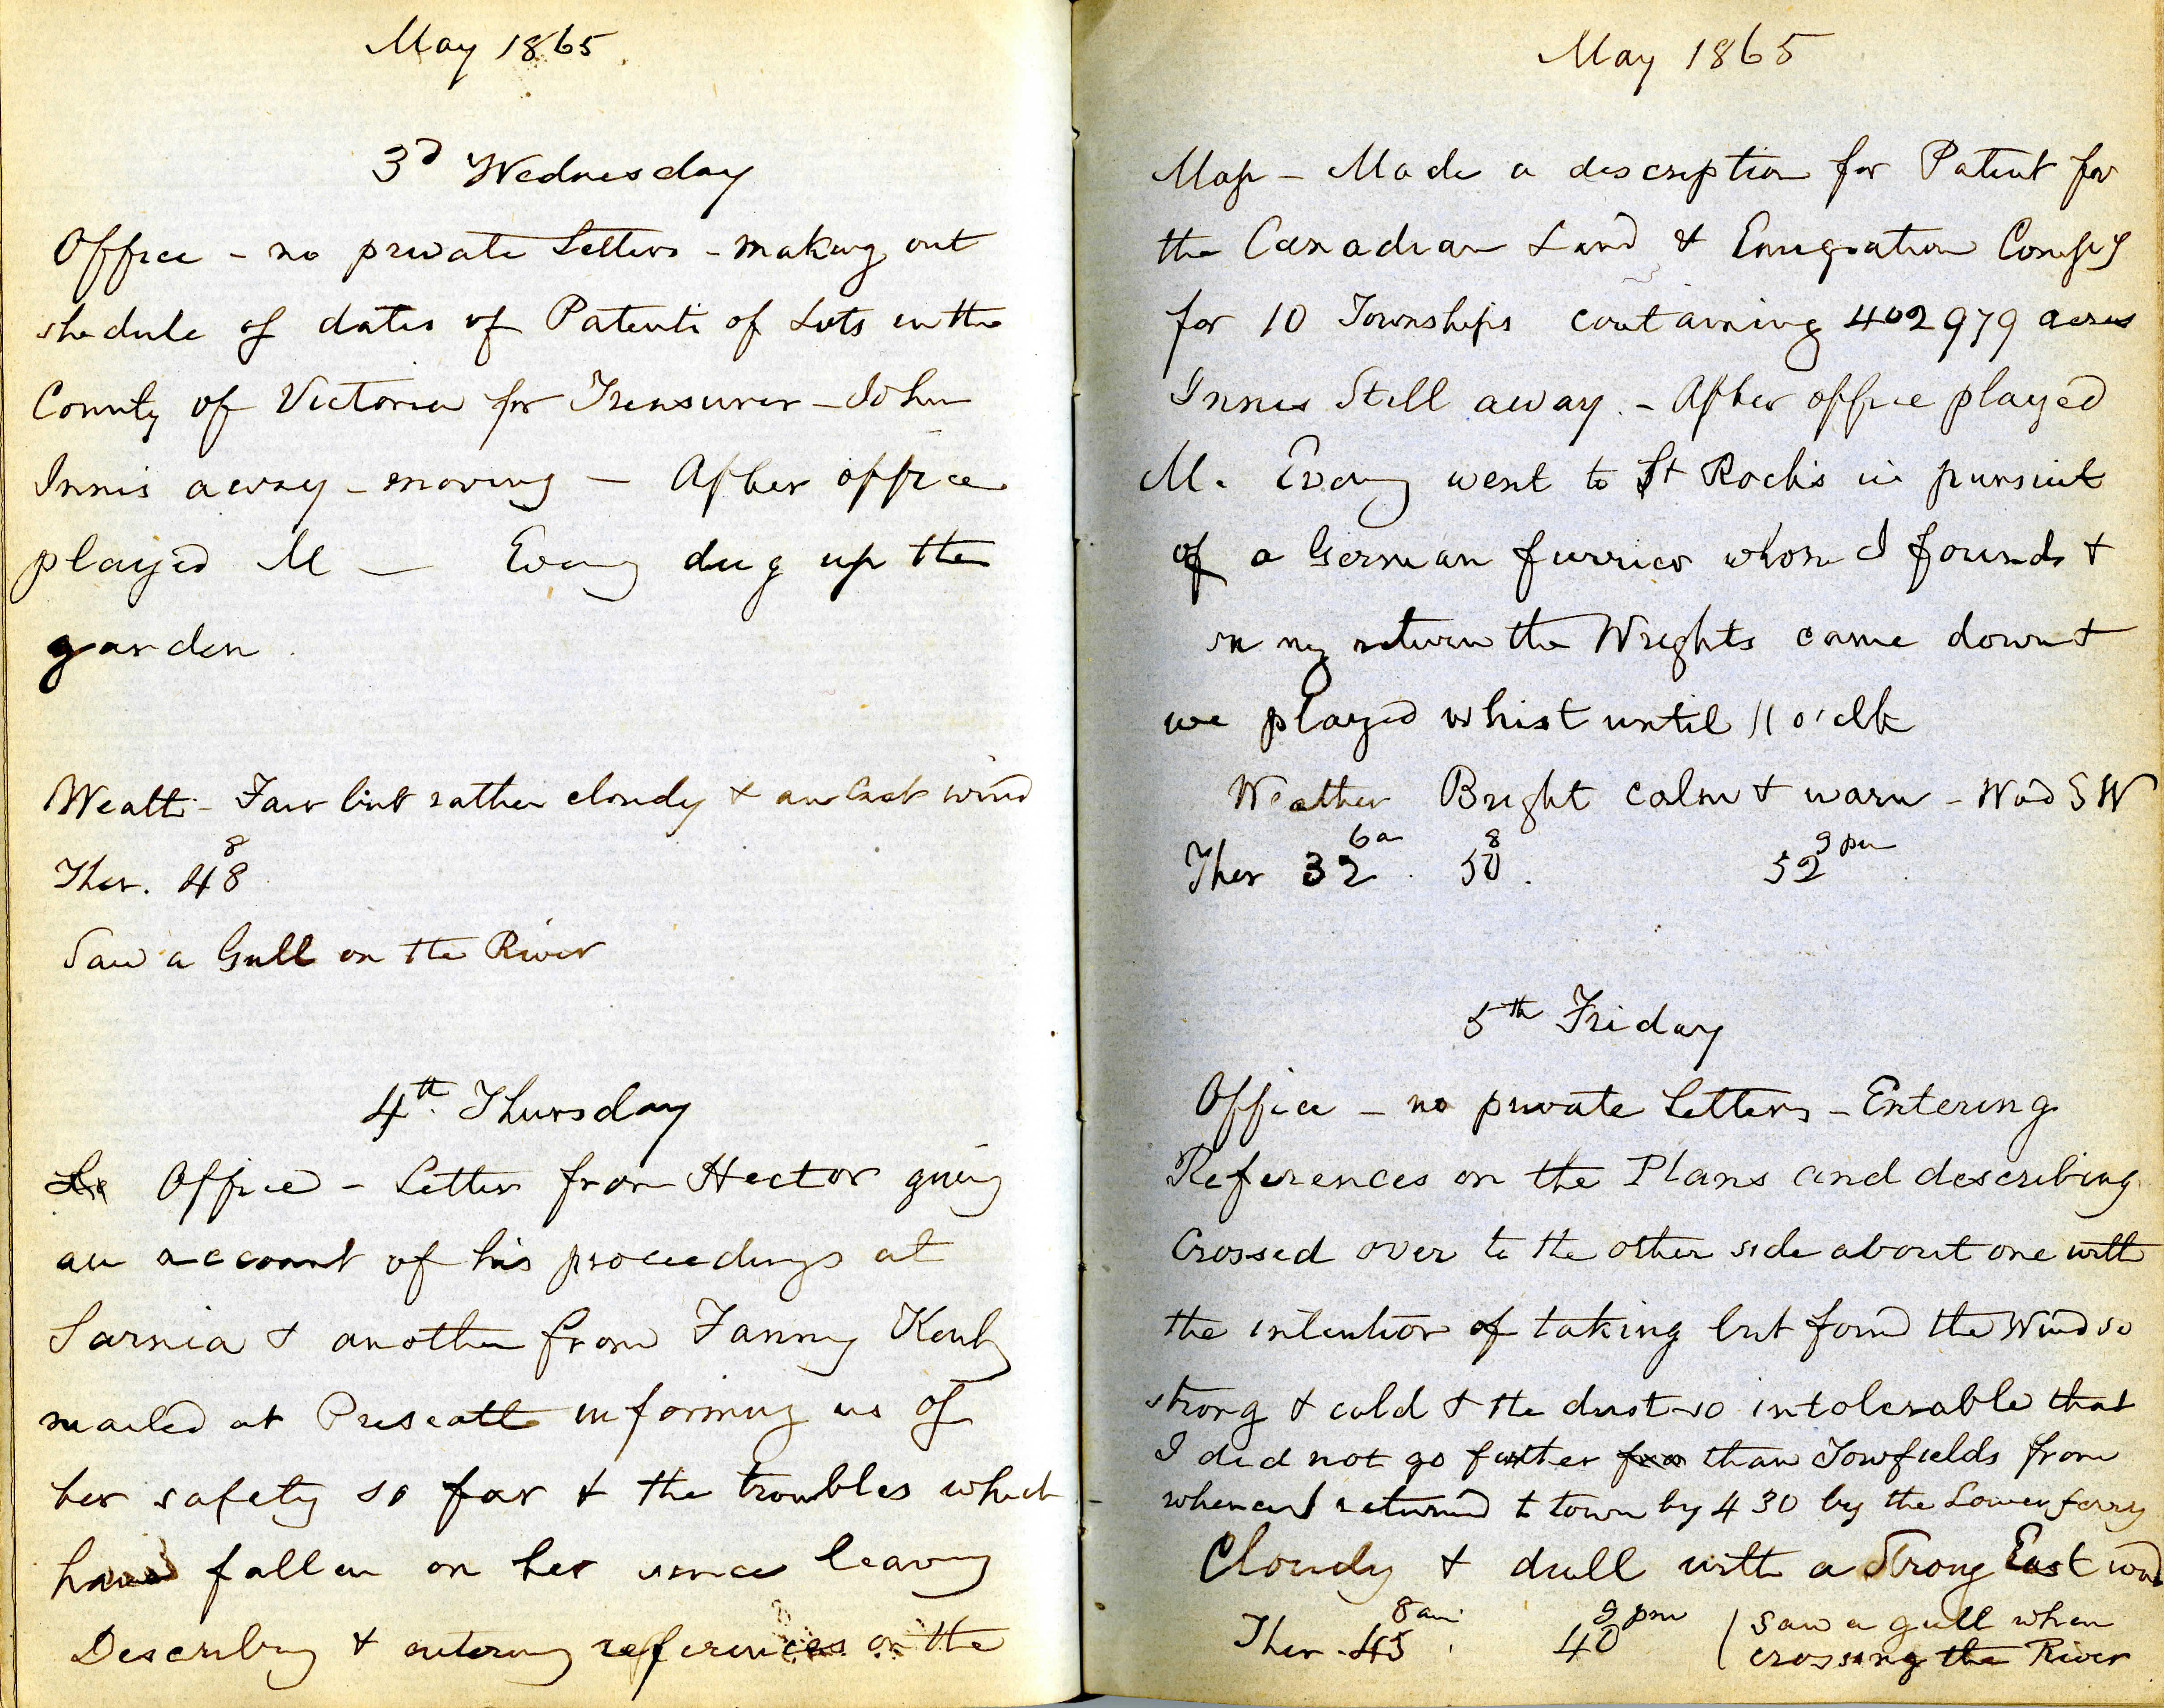 May 1865.
3d Wednesday
Office - no private Letters - making out
shedule of dates of Patents of Lots in the
County of Victoria for Treasurer - John
Innis away - moving - After office
played M - Eveng dug up the
garden.
Weathr - Fair but rather cloudy & an East wind
8
Ther. 48
Saw a Gull on the River
4th. Thursday
Office - Letter from Hector giving
an account of his proceedings at
Sarnia & another from Fanny
mailed at Prescott informing us of
her safety so far & the troubles which
have fallen on her since leaving
Describing & entering refferences on the
May 1865
Map - Made a description for Patent for
the Canadian Land & Emigration Compy
for 10 Townships containing 402979 acres
Innes Still away. - After office played
M. Eveng went to St Rochs in pursuit
of a German furrier whom I found &
on my return the Wrights came down &
we played whist until 11 o'clk
Weather Bright calm & warm - Wind SW
6am 8 9 pm
Ther 32. 50. 52
5th Friday
Office - no private Letters - Entering
References on the Plans and describing
Crossed over to the other side about one with
the intention of taking but found the Wind so
strong & cold & the dust so intolerable that
I did not go further than Towfields from
whence I returned to town by 4 30 by the Lower ferry
Cloudy & dull with a Strong East wind
8am 9 pm
Ther - 45. 40 (Saw a gull when
crossing the River